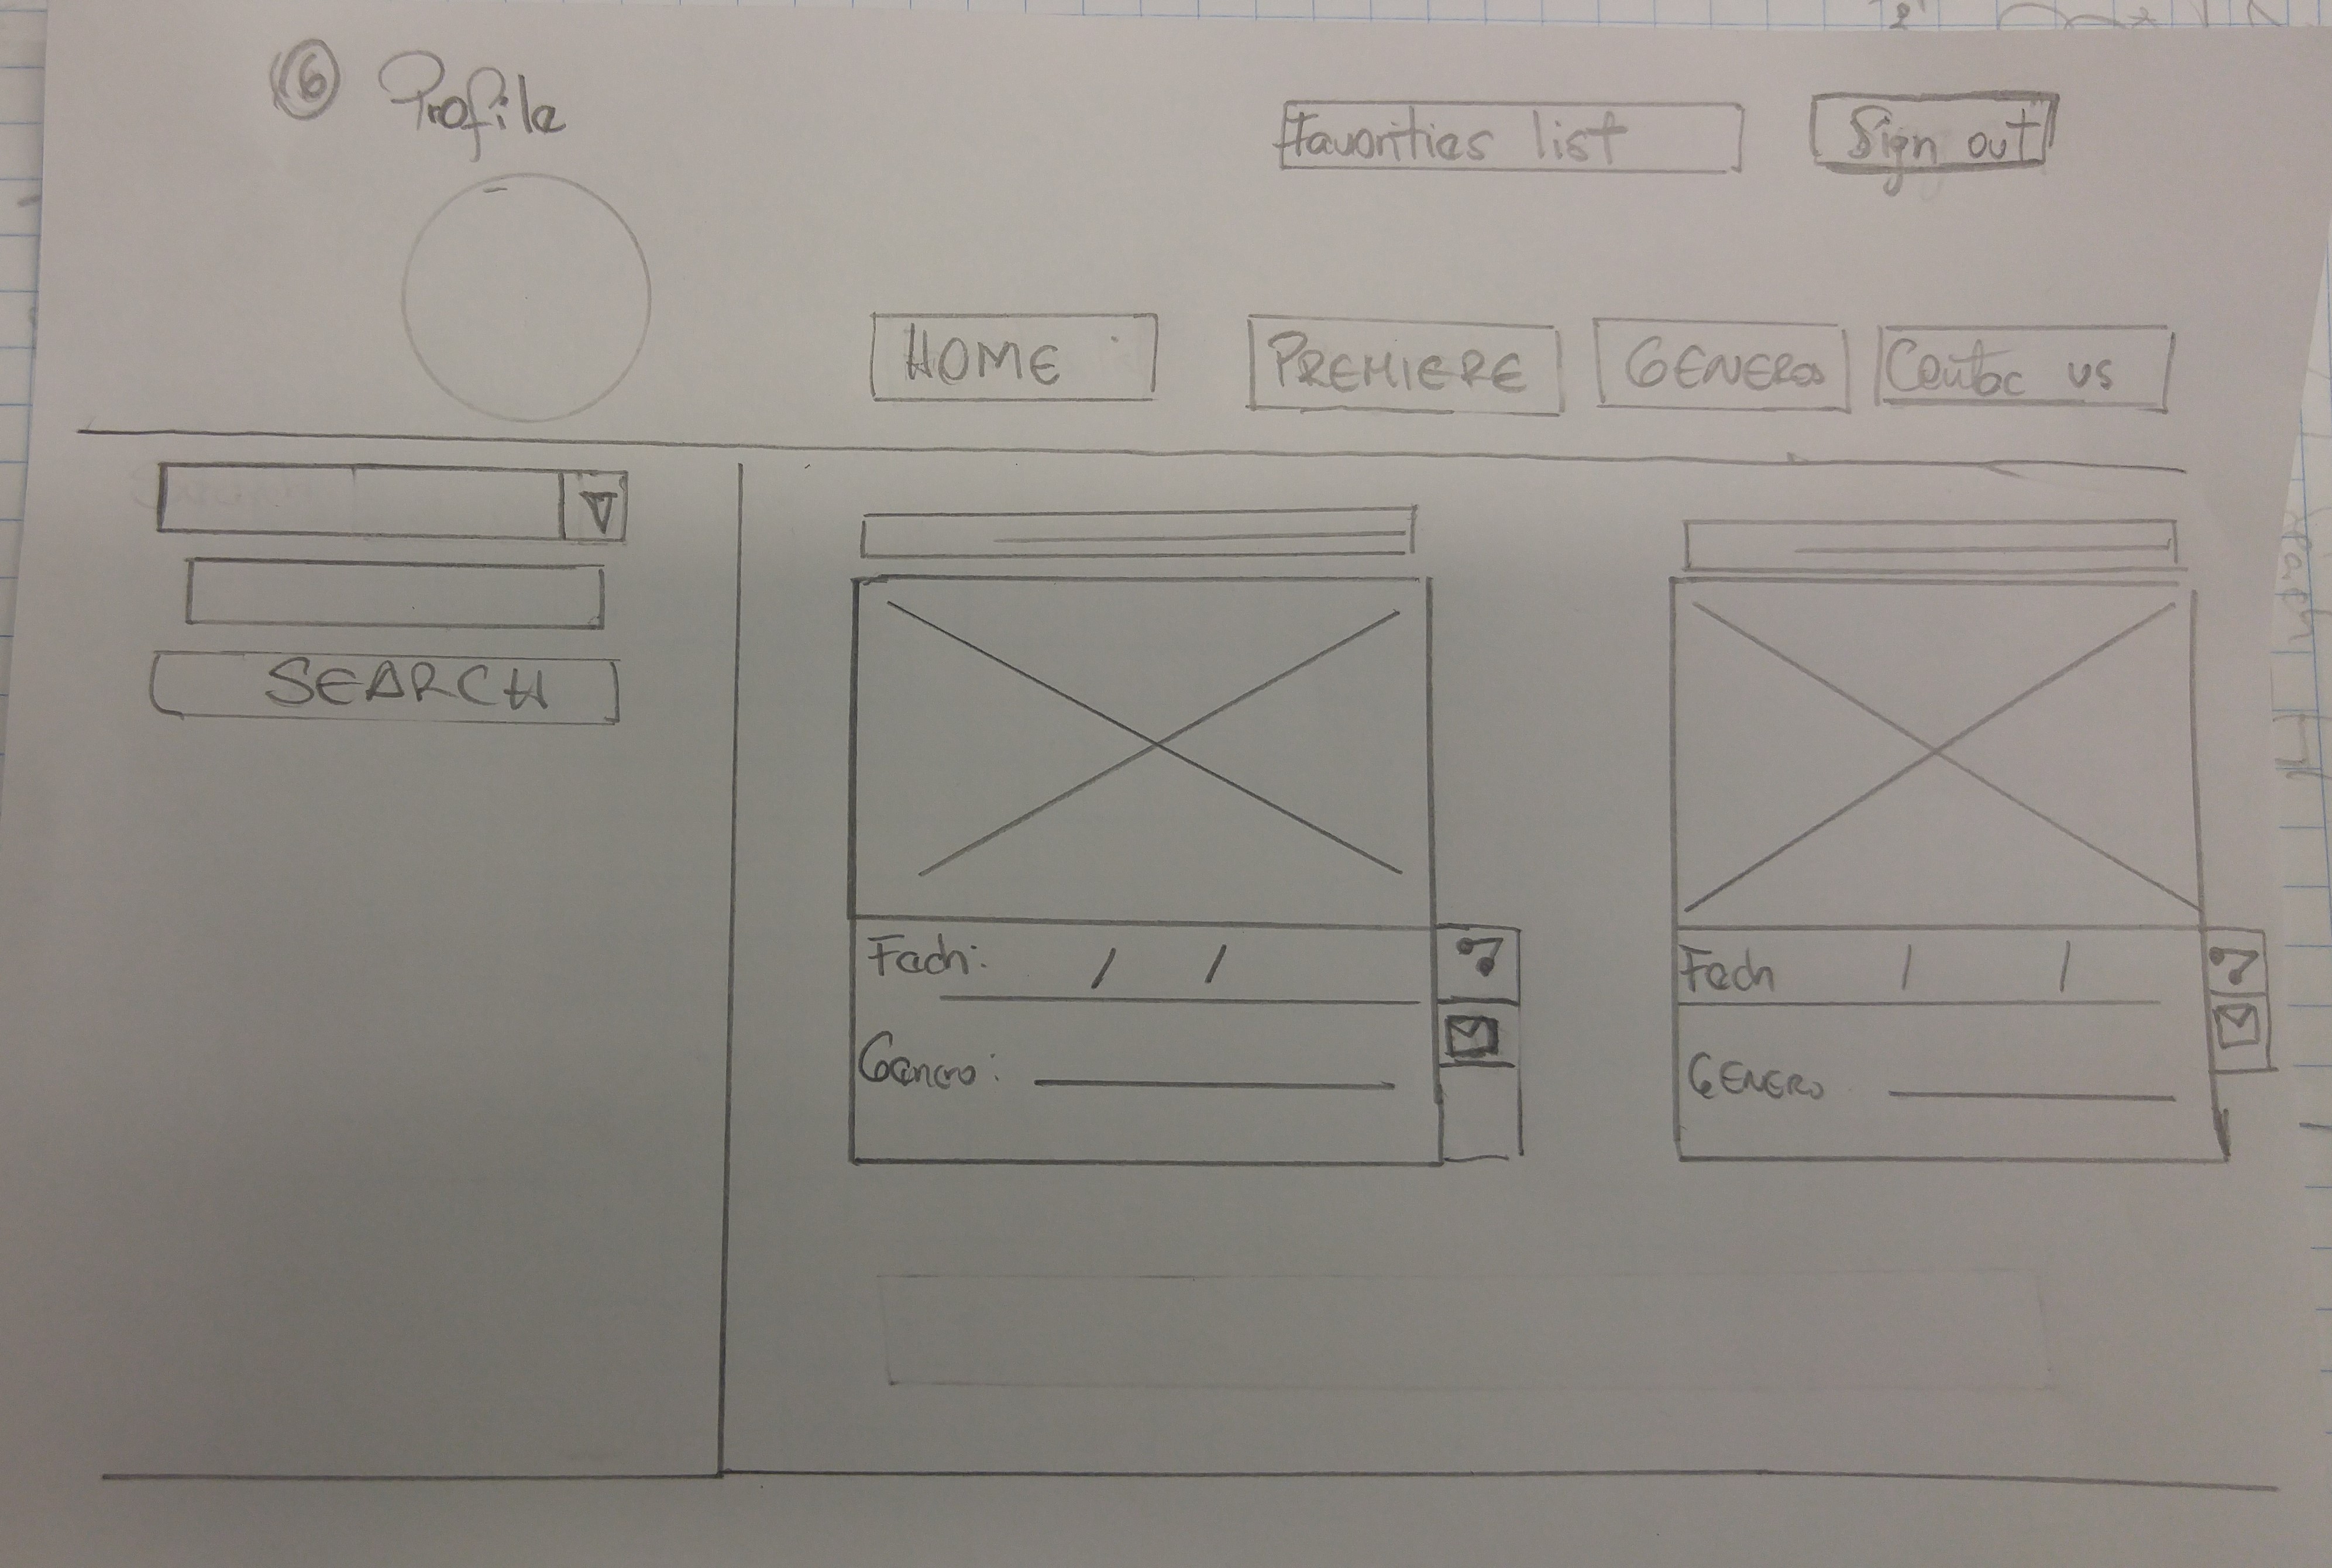 6 Profile
Favorities list
Sign out
HOME
PREMIERE
GENEROS
Contac us
SEARCH
Fech: / /
Genero:
Fech / /
GENERO